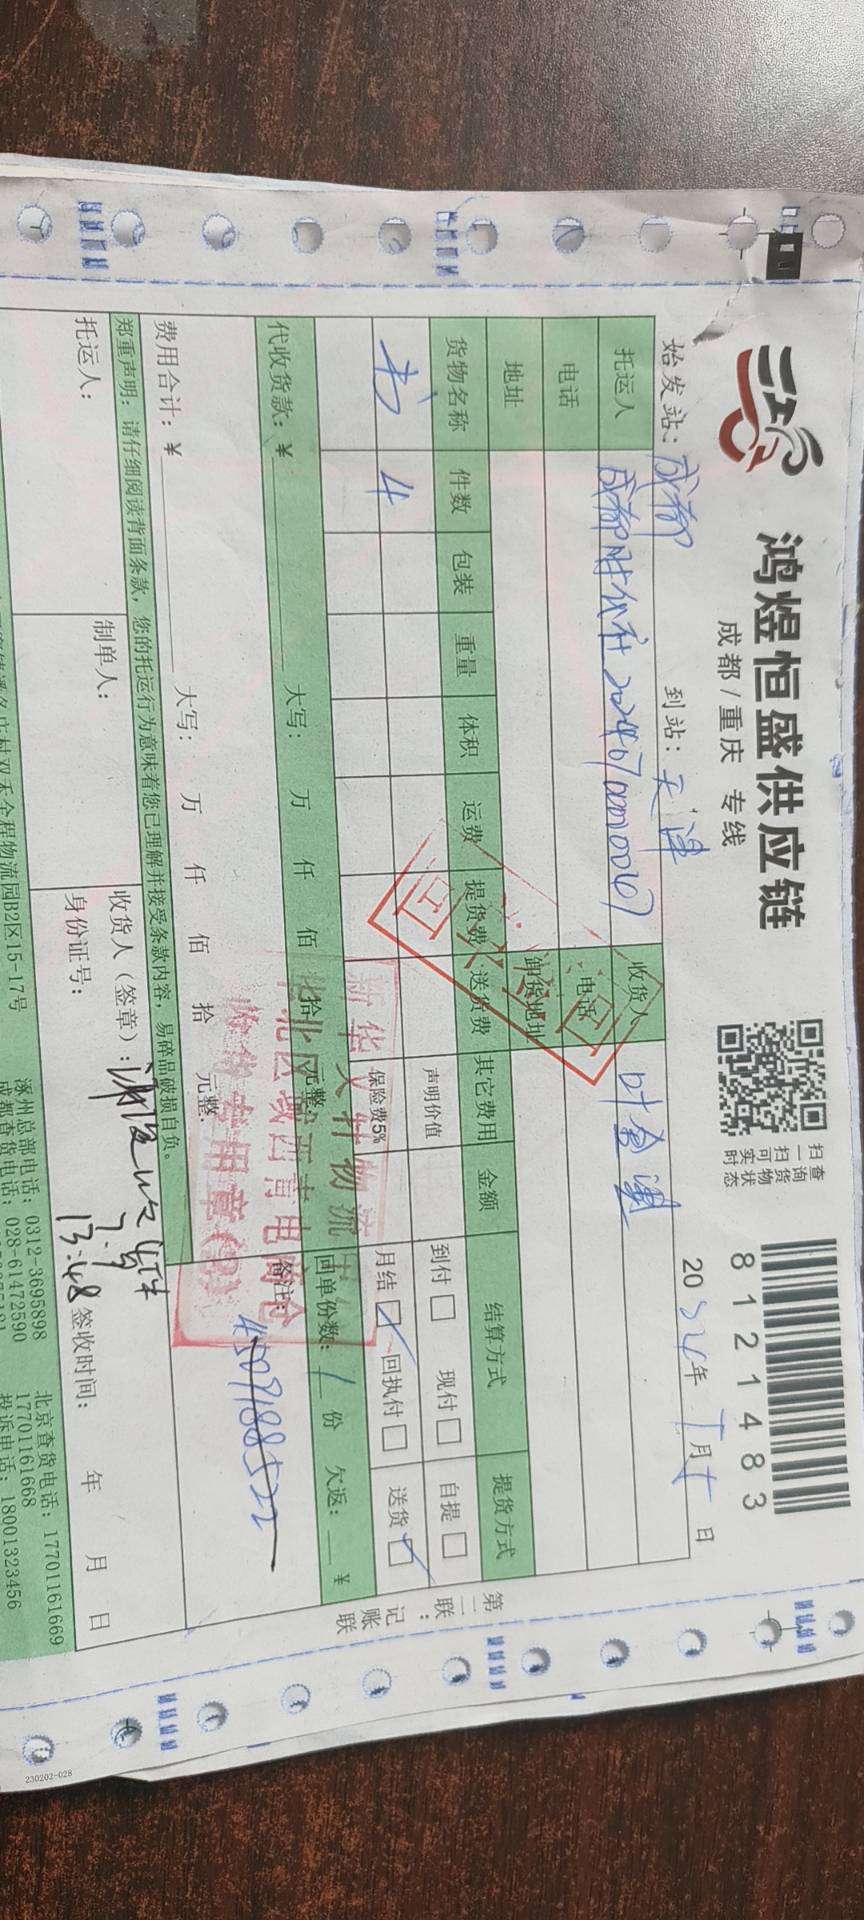 鸿煜恒盛供应链
成都/重庆 专线
扫一扫可实时
查询货物状态
81214833
始发站：成都
到站：天津
2024年7月 日
托运人
成都时代社
收货人
叶金澜
电话
电话
地址
卸货地址
货物名称 件数 包装 重量 体积 运费 提货费 送货费 其它费用 金额 结算方式 提货方式
书 4
声明价值
到付 现付 自提
保险费5‰
月结 回执付 送货
代收货款：¥ 大写： 万 仟 佰 拾 元整.
回单份数：1份 欠返： ¥
费用合计：¥ 大写： 万 仟 佰 拾 元整.
备注：
4509188522
郑重声明：请仔细阅读背面条款，您的托运行为意味着您已理解并接受条款内容，易碎品破损自负。
托运人：
制单人：
收货人（签章）：
身份证号：
7.9
13:48
签收时间： 年 月 日
回
回
新华文轩物流
华北区域西青电商仓
收货专用章
第二联：记账联
双禾全程物流园B2区15-17号
涿州总部电话：0312-3695898
成都查货电话：028-61472590
北京查货电话：17701161669
17701161668
投诉电话：18001323456
230202-028